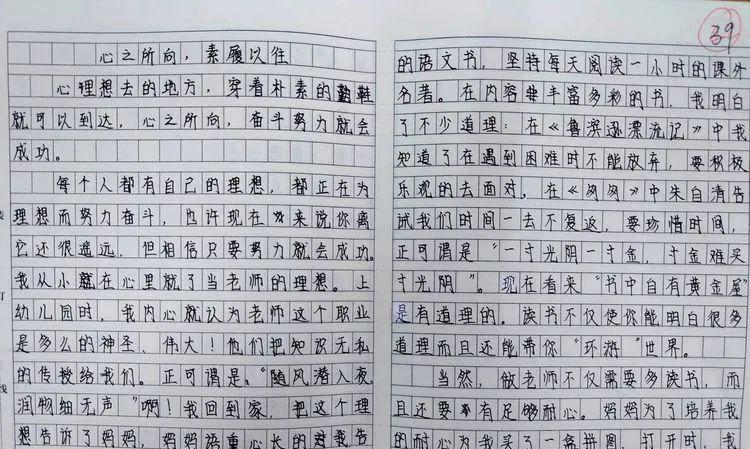 39
心之所向，素履以往
心理想去的地方，穿着朴素的鞋
就可以到达，心之所向，奋斗努力就会
成功。
每个人都有自己的理想，都正在为
理想而努力奋斗，也许现在来说你离
它还很遥远，但相信只要努力就会成功。
我从小就在心里就了当老师的理想。上
幼儿园时，我内心就认为老师这个职业
是多么的神圣、伟大！他们把知识无私
的传授给我们。正可谓是、“随风潜入夜，
润物细无声”啊！我回到家，把这个理
想告诉了妈妈，妈妈语重心长的对我告
的语文书，坚持每天阅读一小时的课外
名著。在内容丰富多彩的书，我明白
了不少道理：在《鲁滨逊漂流记》中我
知道了在遇到困难时不能放弃，要积极
乐观的去面对，在《匆匆》中朱自清告
试我们时间一去不复返，要珍惜时间，
正可谓是“一寸光阴一寸金，寸金难买
寸光阴”。现在看来“书中自有黄金屋”
是有道理的。读书不仅使你能明白很多
道理而且还能带你“环游”世界。
当然，做老师不仅需要多读书，而
且还要有足够耐心。妈妈为了培养我
的耐心为我买了一盒拼图，打开时，我
装
订
线